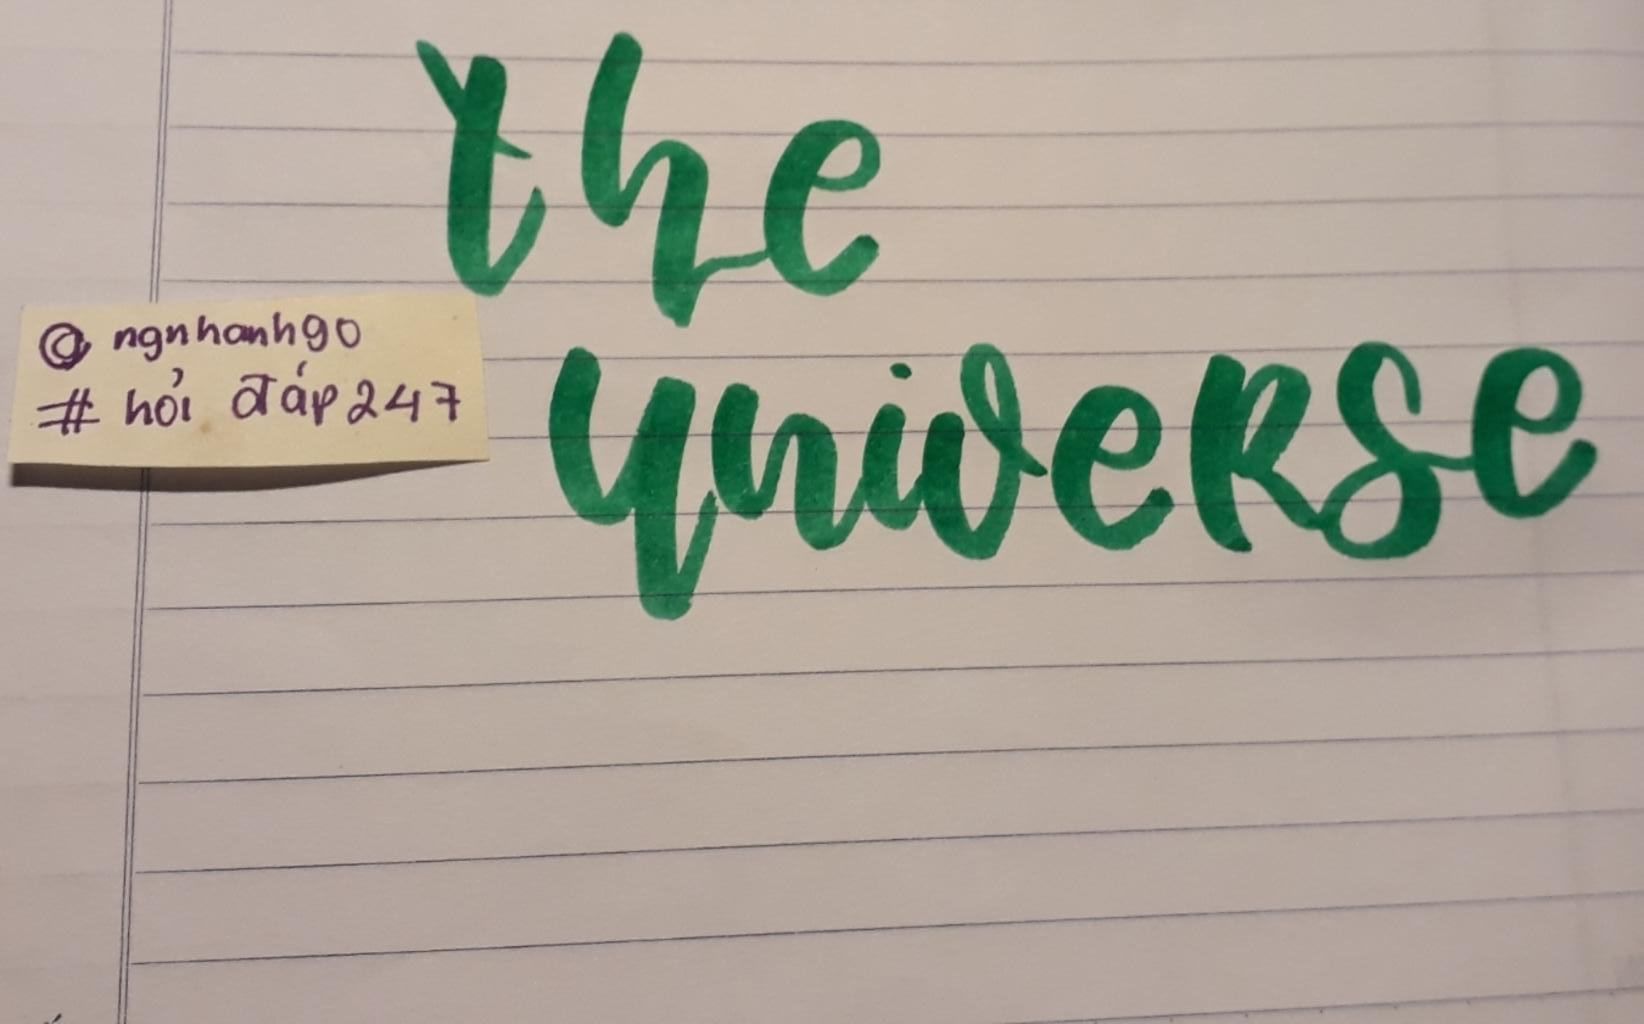 the
universe
@ ngnhanhgo
# hỏi đáp 247